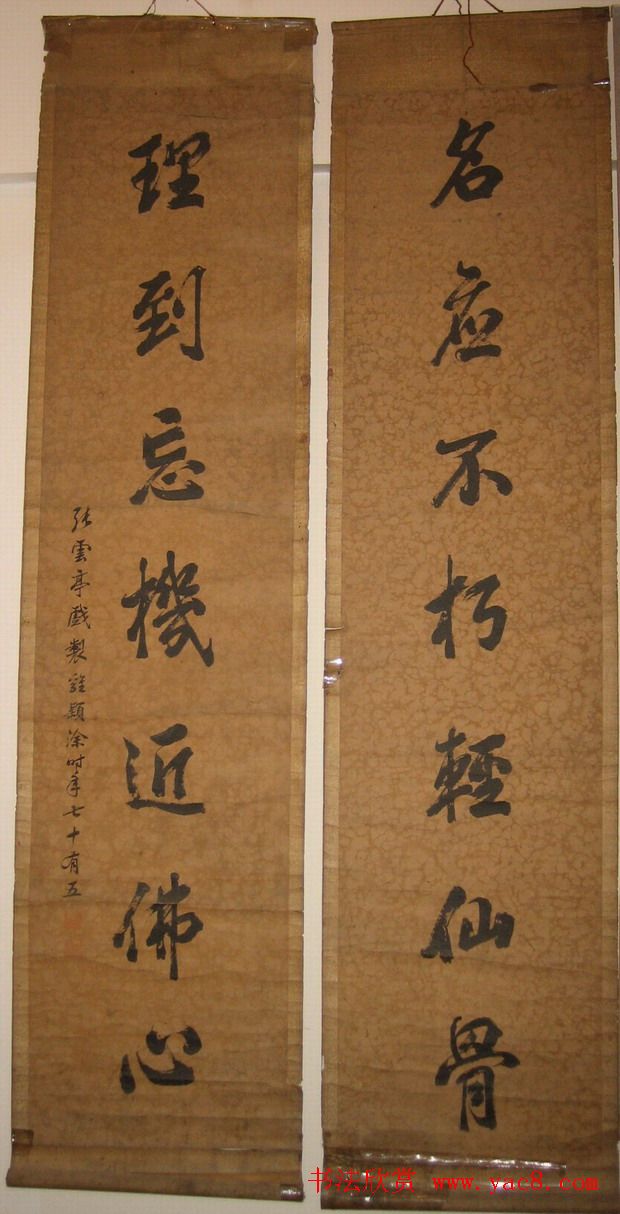 名應不朽輕仙骨
理到忘機近佛心
張雲亭戲製 顥塗時年七十有五
书法欣赏 www.yac8.com